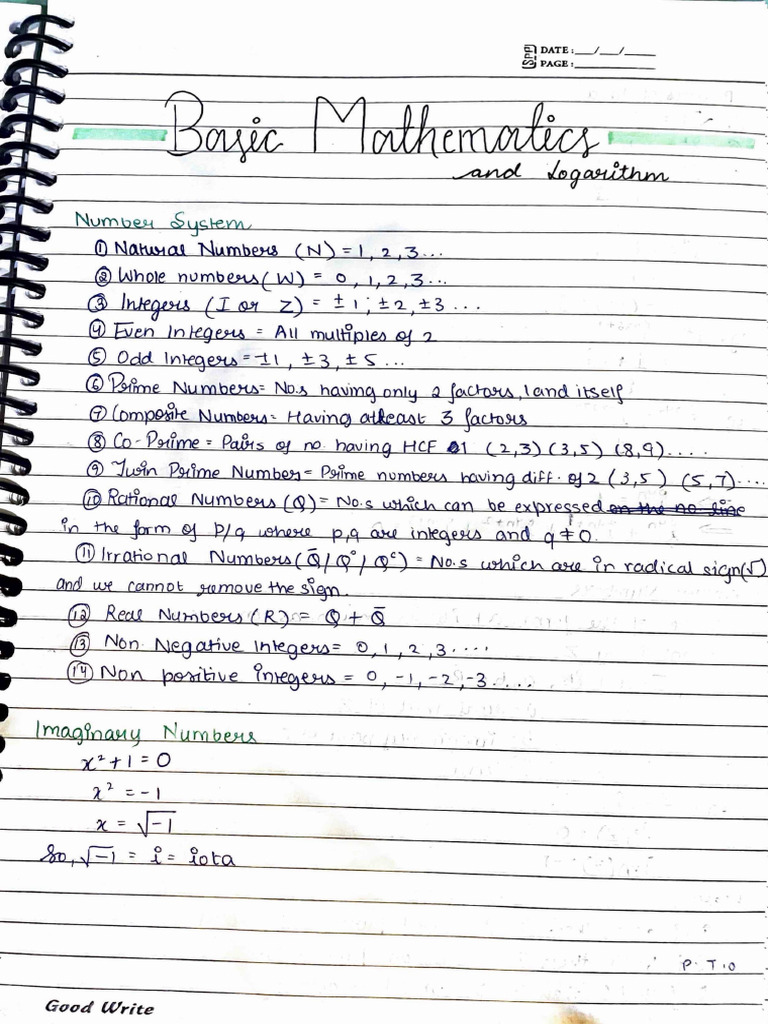 DATE: __/__/____
PAGE: ________
Basic Mathematics
and Logarithm
Number System
① Natural Numbers (N) = 1, 2, 3...
② Whole numbers (W) = 0, 1, 2, 3...
③ Integers (I or Z) = ±1, ±2, ±3...
④ Even Integers = All multiples of 2
⑤ Odd Integers = ±1, ±3, ±5...
⑥ Prime Numbers = No.s having only 2 factors, 1 and itself
⑦ Composite Numbers = Having atleast 3 factors
⑧ Co-Prime = Pairs of no. having HCF 1 (2,3) (3,5) (8,9)....
⑨ Twin Prime Number = Prime numbers having diff. of 2 (3,5) (5,7)....
⑩ Rational Numbers (Q) = No.s which can be expressed on the no line
in the form of P/q where p,q are integers and q ≠ 0.
⑪ Irrational Numbers (Q̄/Q°/Qᶜ) = No.s which are in radical sign(√)
and we cannot remove the sign.
⑫ Real Numbers (R) = Q + Q̄
⑬ Non. Negative integers = 0, 1, 2, 3....
⑭ Non positive integers = 0, -1, -2, -3....
Imaginary Numbers
x² + 1 = 0
x² = -1
x = √-1
So, √-1 = i = iota
P.T.O
Good Write